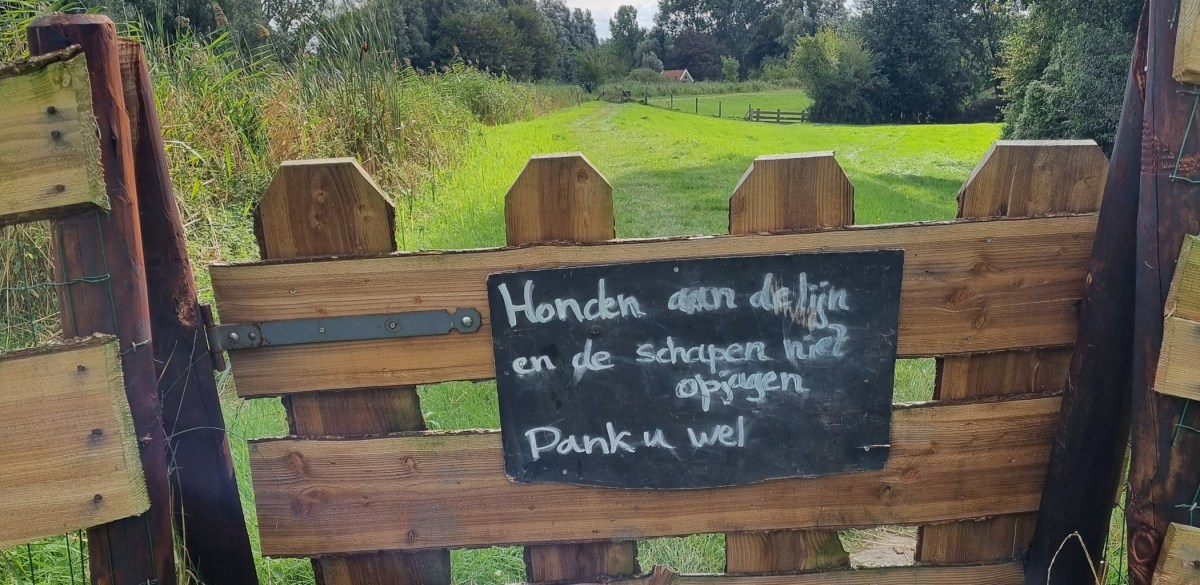 Honden aan de lijn
en de schapen niet
opjagen
Dank u wel